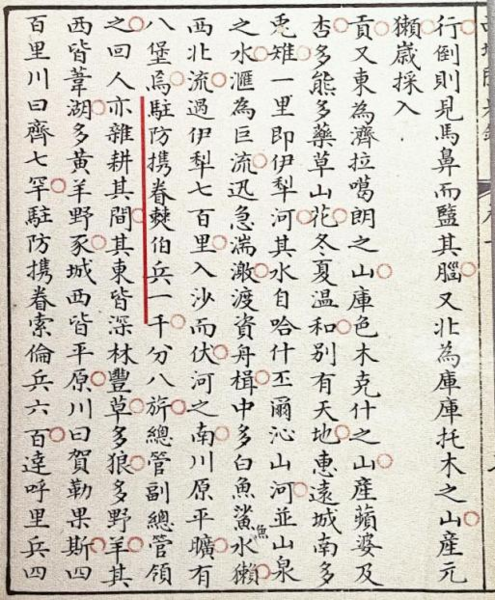 行倒則見馬鼻而盬其腦又北為庫庫托木之山產元
獺歲採入
貢又東為濟拉噶朗之山庫色木克什之山產蘋婆及
杏多熊多藥草山花冬夏溫和別有天地惠遠城南多
兎雉一里即伊犁河其水自哈什丕爾沁山河並山泉
之水滙為巨流迅急湍激渡資舟楫中多白魚鯊魚水獺
西北流過伊犁七百里入沙而伏河之南川原平曠有
八堡焉駐防携眷僰伯兵一千分八旂總管副總管領
之回人亦雜耕其間其東皆深林豐草多狼多野羊其
西皆葦湖多黃羊野豕城西皆平原川曰賀勒果斯四
百里川曰齊七罕駐防携眷索倫兵六百達呼里兵四